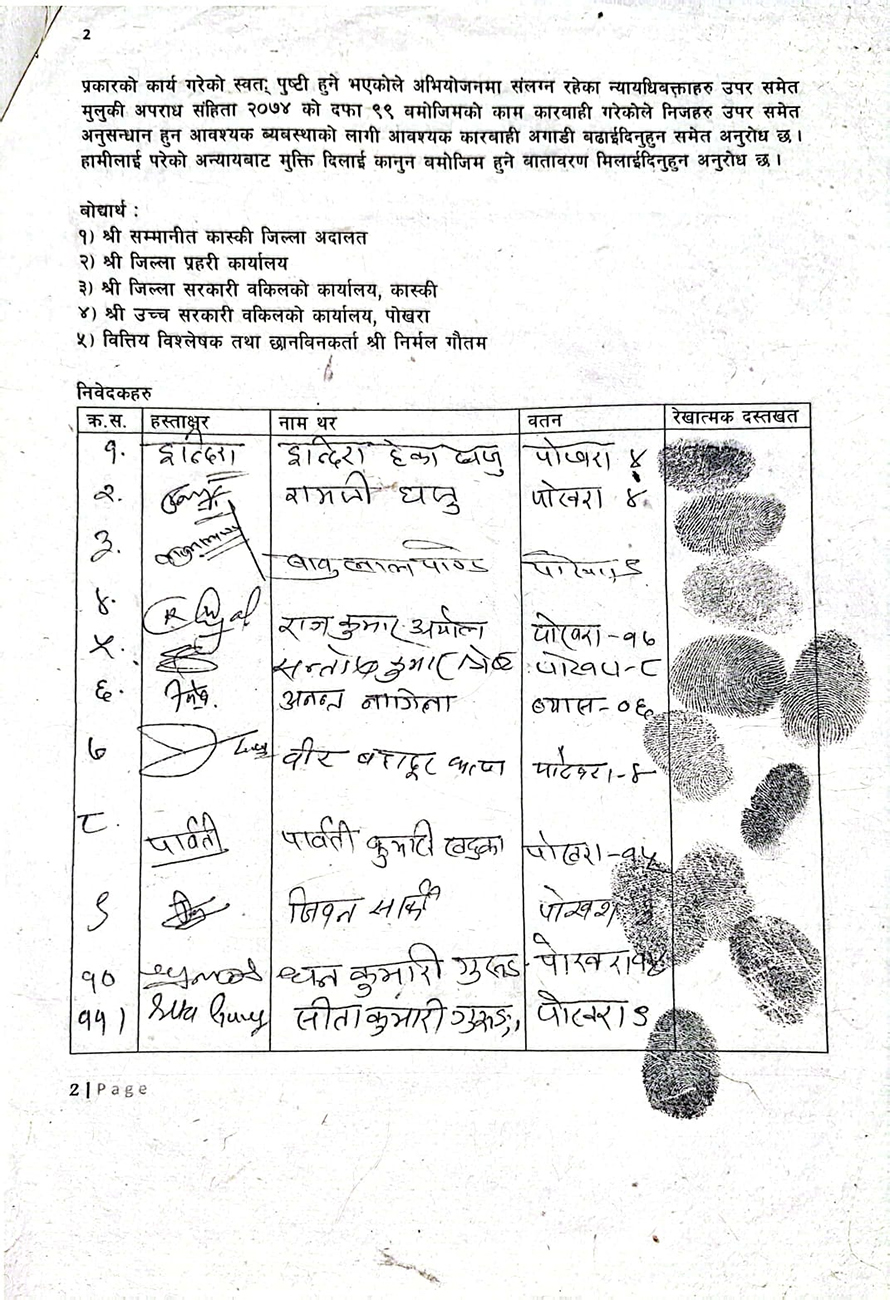 2
प्रकारको कार्य गरेको स्वत् पुष्टी हुने भएकोले अभियोजनमा संलग्न रहेका न्यायधिवक्ताहरु उपर समेत
मुलुकी अपराध संहिता २०७४ को दफा ९९ वमोजिमको काम कारवाही गरेकोले निजहरु उपर समेत
अनुसन्धान हुन आवश्यक ब्यवस्थाको लागी आवश्यक कारवाही अगाडी बढाईदिनुहुन समेत अनुरोध छ।
हामीलाई परेको अन्यायबाट मुक्ति दिलाई कानुन वमोजिम हुने वातावरण मिलाईदिनुहुन अनुरोध छ।
बोद्यार्थ :
१) श्री सम्मानीत कास्की जिल्ला अदालत
२) श्री जिल्ला प्रहरी कार्यालय
३) श्री जिल्ला सरकारी वकिलको कार्यालय, कास्की
४) श्री उच्च सरकारी वकिलको कार्यालय, पोखरा
५) वित्तिय विश्लेषक तथा छानविनकर्ता श्री निर्मल गौतम
निवेदकहरु
क्र.स. हस्ताक्षर नाम थर वतन रेखात्मक दस्तखत
१. इन्दिरा इन्दिरा पोखरा ४
२. रामजी पोखरा ४
३.
४. राज कुमार अर्याल पोखरा-१७
५. सन्तोष कुमार श्रेष्ठ
६. अनन्त व्यास-०६
७ वीर बहादुर पोखरा-४
८. पार्वती पार्वती कुमारी खड्का पोखरा-१५
९ जिवन सार्की पोखरा
१० धन कुमारी गुरुङ पोखरा
११। सीता कुमारी गुरुङ, पोखरा ९
2 | Page